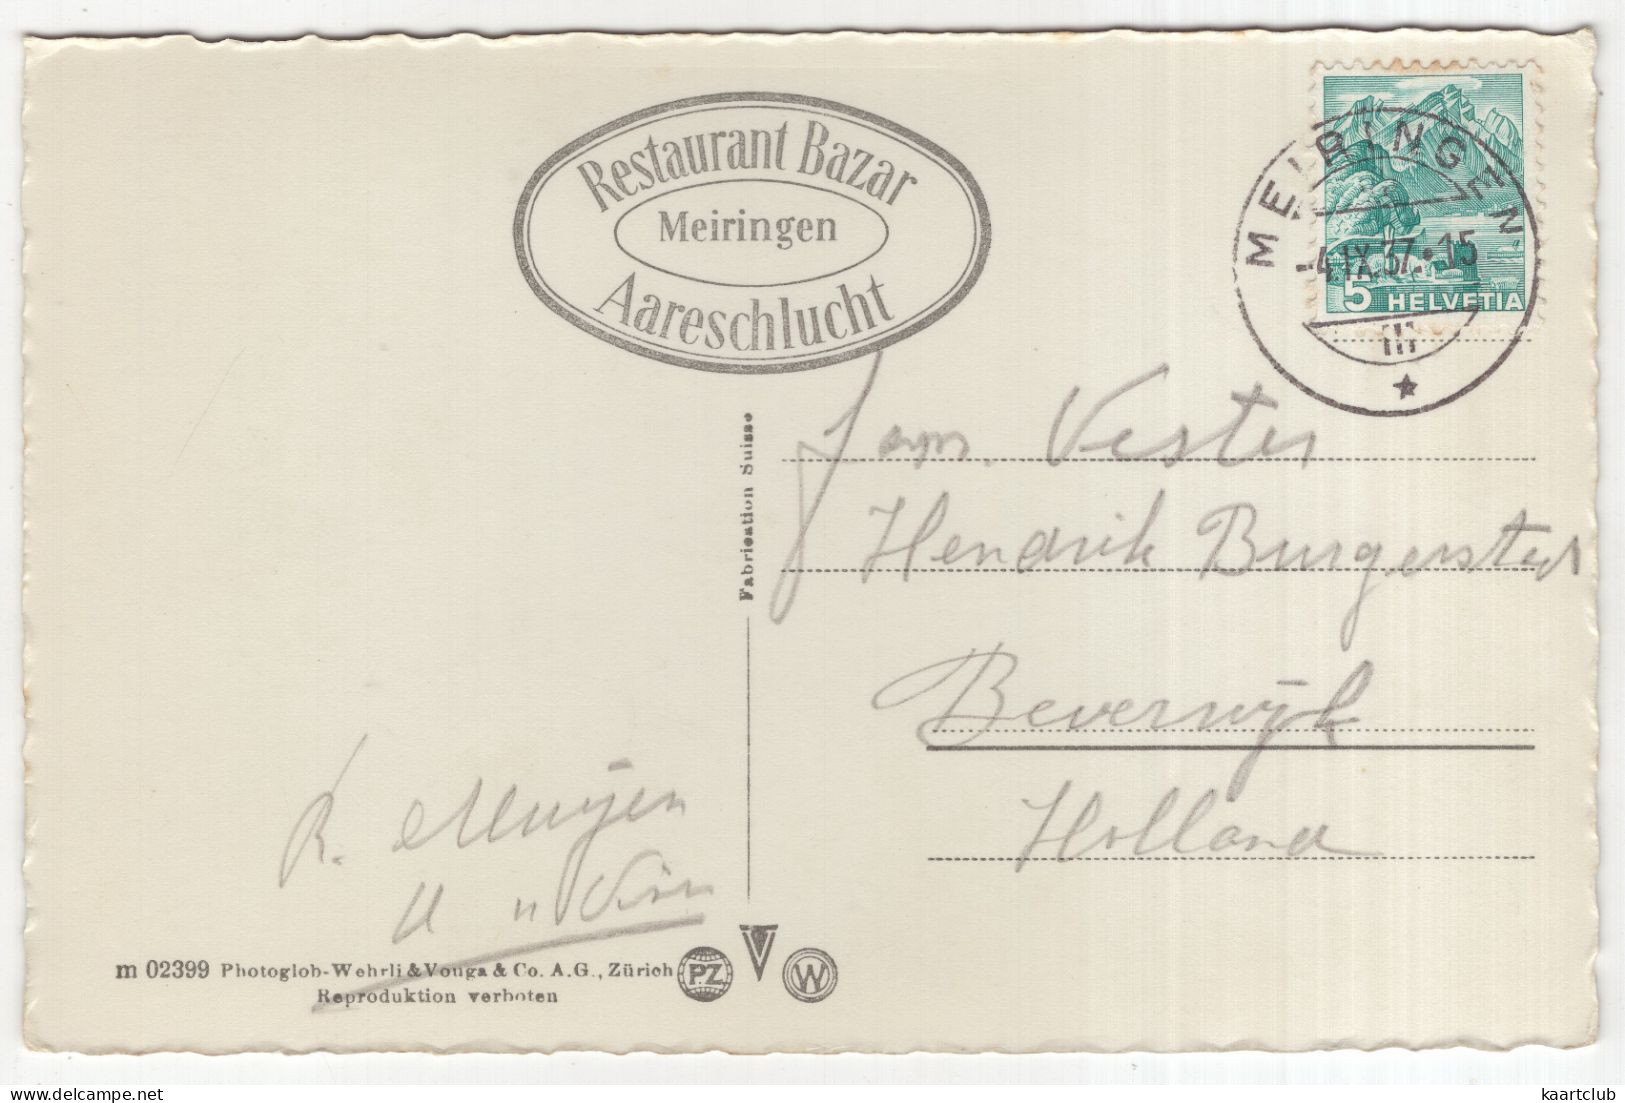 Restaurant Bazar
Meiringen
Aareschlucht
MEIRINGEN
-4.IX.37.•15
5 HELVETIA
Fabrication Suisse
Fam. Vester
Hendrik Burgerstr
Beverwijk
Holland
R.
m 02399 Photoglob-Wehrli & Vouga & Co. A.G., Zürich
PZ
V
W
Reproduktion verboten
kaartclub